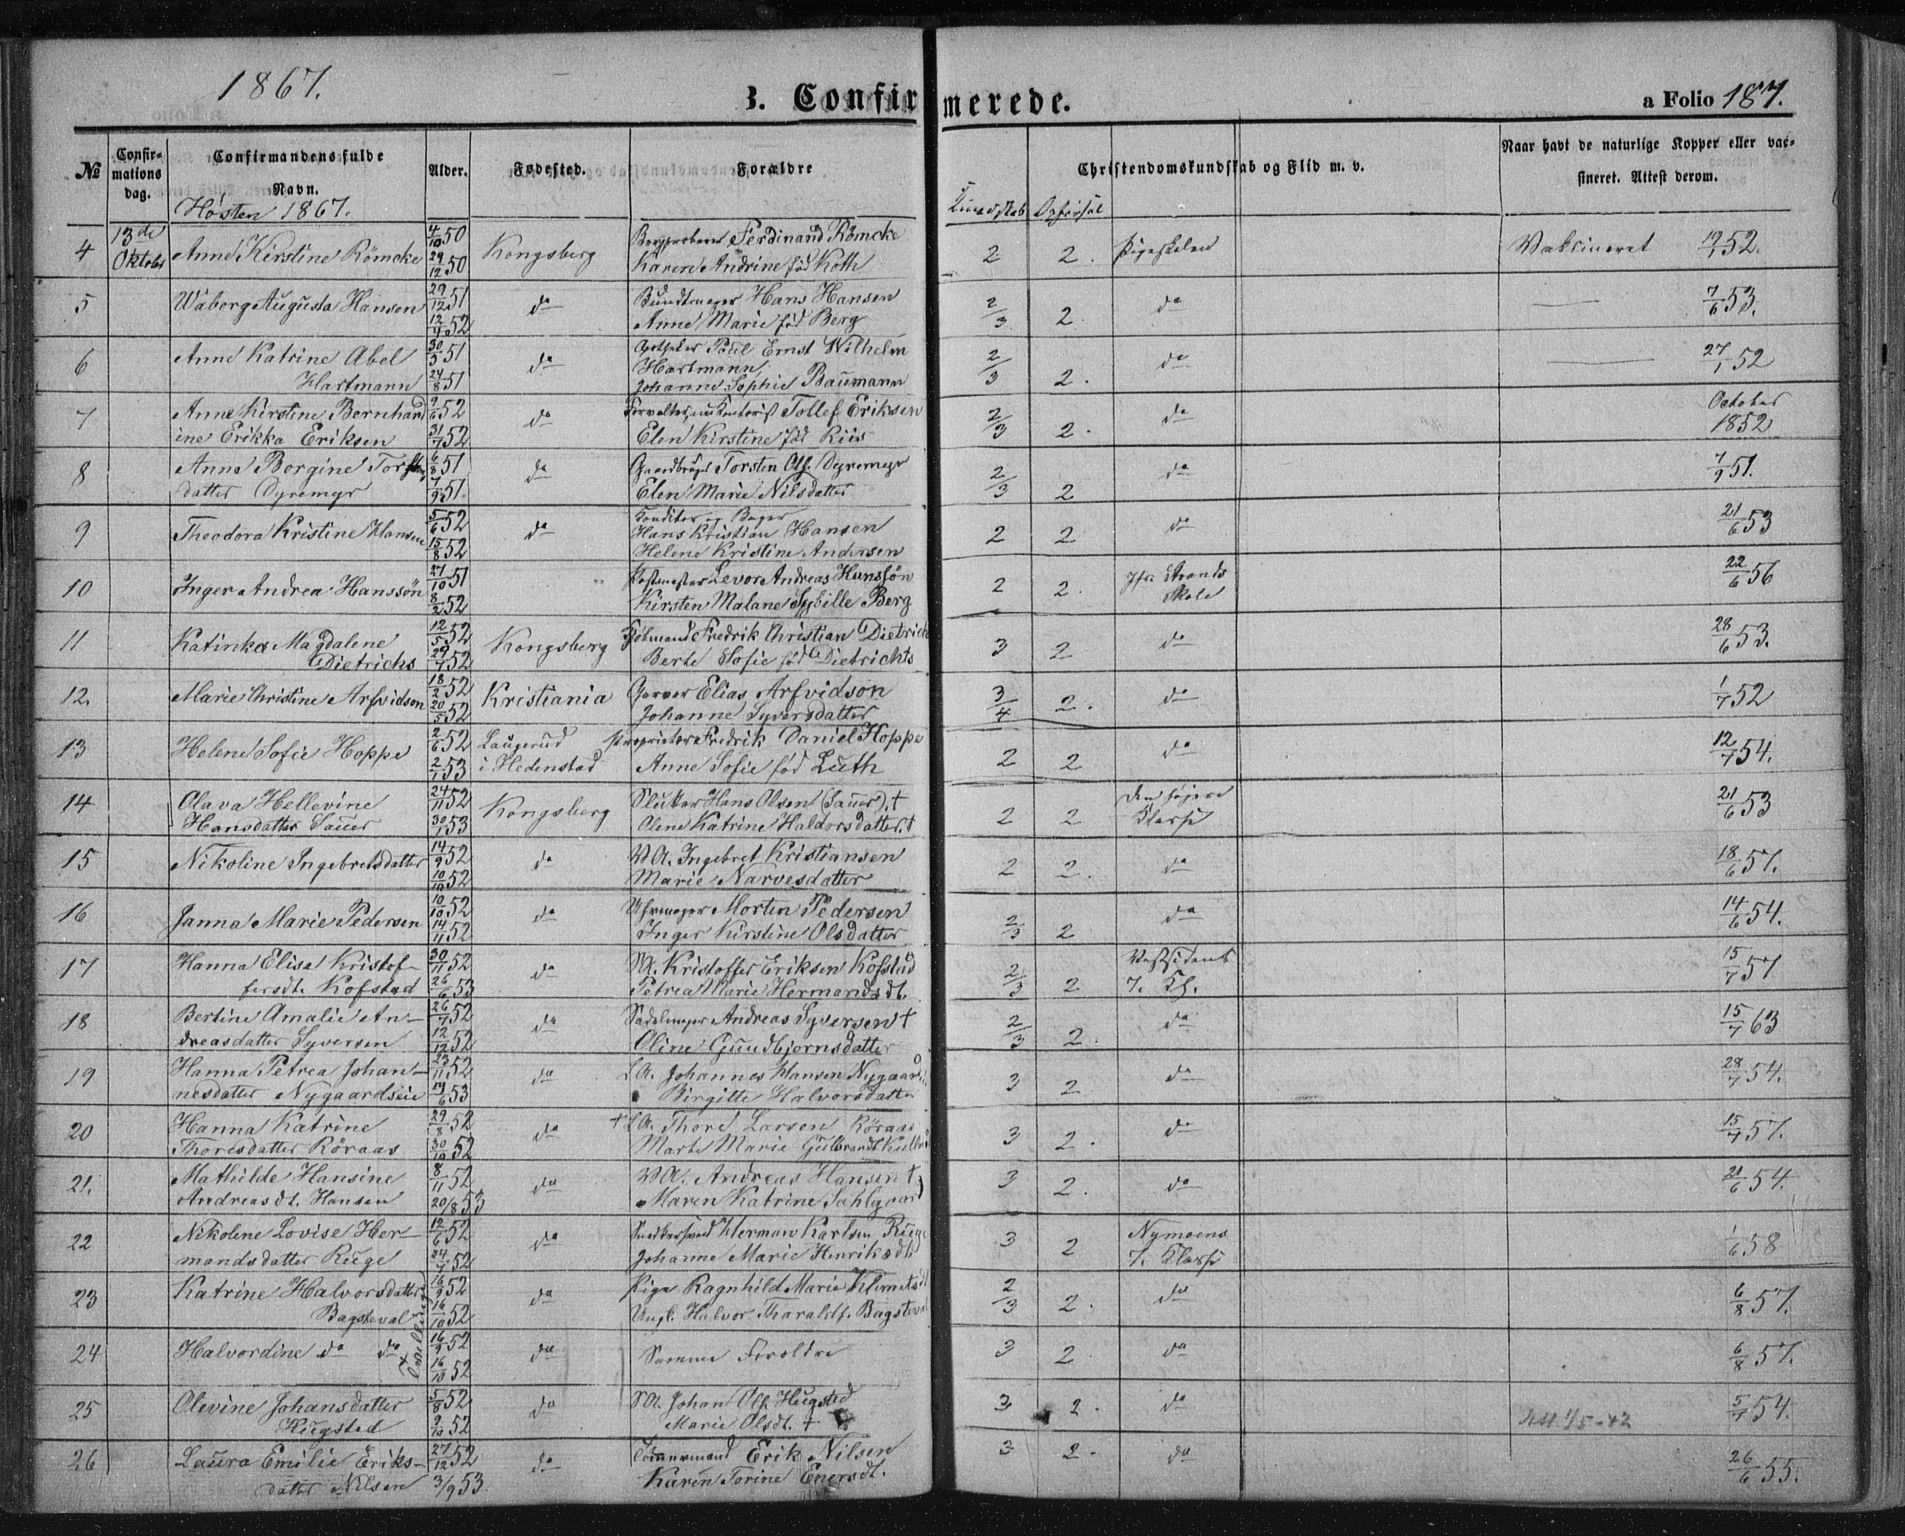 1867.
B. Confirmerede.
a Folio 187.
№
Confirmations dag.
Confirmandens fulde Navn.
Alder.
Fødested.
Forældre
Christendomskundskab og Flid m. v.
Naar havt de naturlige Kopper eller vaccineret. Attest derom.
Høsten 1867.
Kundskab
4 13de Oktober Anne Kirstine Römcke 4/10 50 29/12 50 Kongsberg Ferdinand Römcke
Karen Andrine fød Koth 2 2. Pigeskolen Vaksineret 52.
5 Waborg Augusta Hansen 29/12 51 12/4 52 da Bundtmager Hans Hansen
Anne Marie fød Berg 2/3 2. da 7/6 53.
6 Anne Katrine Abel
Hartmann 30/3 51 24/8 51 da Apotheker Paul Ernst Wilhelm
Hartmann
Johanne Sophie Baumann 2/3 2. da 27/1 52
7 Anne Kirstine Bernhard
ine Erikka Eriksen 9/6 52 31/7 52 da Tollef Eriksen
Elen Kirstine fød Riis 2/3 2. da October
1852
8 Anne Borgine Torsten
datter Dyremyr 6/8 51 7/9 51. da Gaardbruger Torsten Ols. Dyremyr
Elen Marie Nilsdatter 2/3 2 da 7/9 51.
9 Theodora Kristine Hansen 5/6 52 15/8 52 da Konditor og Bager
Hans Kristian Hansen
Helene Kristine Andersen 2 2 da 21/6 53
10 Inger Andrea Hanssön 27/10 51 8/2 52 " Postmester Levor Andreas Hanssön
Kirsten Malane Sybille Berg 2 2. Jfr. Strands
Skole 22/6 56
11 Katinka Magdalene
Dietrichs 12/5 52 29/7 52 Kongsberg Kjøbmand Fredrik Christian Dietrich
Berte Sofie fød Dietrichs 3 2 da 28/6 53.
12. Marie Christine Arfvidson 18/2 52 20/5 52 Kristiania Garver Elias Arfvidson
Johanne Syversdatter 3/4 2. da 1/7 52
13 Helene Sofie Hoppe 2/6 52 2/1 53 Laugerud
i Hedenstad Proprietær Fredrik Daniel Hoppe
Anne Sofie fød Luth 2 2 da 12/7 54.
14 Olava Hellevine
Hansdatter Sauer 24/11 52 30/1 53 Kongsberg Slutter Hans Olsen (Sauer). †
Olene Katrine Haldorsdatter. † 2 2 Den høiere
Klasse 21/6 53
15 Nikoline Ingebretsdatter 14/9 52 10/10 52 da VA. Ingebret Kristiansen
Marie Narvesdatter 2 2. da 18/6 57.
16 Janna Marie Pedersen 10/10 52 14/11 52 da Uhrmager Morten Pedersen
Inger Kirstine Olsdatter 2/3 2 da 14/6 54.
17 Hanna Elise Kristof-
fersdt. Kofstad 30/11 52 26/6 53 da SA. Kristoffer Eriksen Kofstad
Petrea Marie Hermandsdt. 2/3 2 Vestsidens
7. Kl. 15/7 57
18 Bertine Amalie An-
dreasdatter Syversen 26/7 52 12/12 52 da Sadelmager Andreas Syversen †
Oline Gundbjornsdatter 2/3 2. da 15/7 63
19 Hanna Petrea Johan-
nesdatter Nygaardseie 23/11 52 19/6 53 da Johannes Hansen Nygaards
Birgitte Halvorsdatter 3 2 da 28/7 54.
20 Hanna Katrine
Thoresdatter Röraas 29/8 52 30/10 52 da † Thore Larsen Röraas
Marte Marie Gulbrandt. 3 2. da 15/7 57.
21. Mathilde Hansine
Andreasdt. Hansen 8/11 52 20/8 53 da VA. Andreas Hansen †
Maren Katrine Sahlgaard 3 2. da 21/6 54.
22 Nikoline Lovise Her-
mandsdatter Ruge 12/6 52 24/7 52 da Herman Karlsen Ruge
Johanne Marie Henriksdt. 3 2 Nymoens
7. Klasse 1/6 58
23 Katrine Halvorsdatter
Bagsteval 16/9 52 16/10 52 da Pige Ragnhild Marie Klemetsdt
Ungk. Halvor Tharaldt. Bagsteval 2/3 2. da 6/8 57.
Tvillinger
24 Halvordine da da 16/9 52 16/10 52 da Samme Forældre 3 2 da 6/8 57.
25 Olevine Johansdatter
Hugsted 5/8 52 2/10 52 da SA. Johan Ols. Hugsted
Marie Olsdt. † 3 2. da 5/7 54.
1/5-42
26 Laura Emilie Eriks-
datter Nilsen 27/12 52 3/9 53. da Tømmermand Erik Nilsen
Karen Torine Enersdt. 3 2. da 26/6 55.